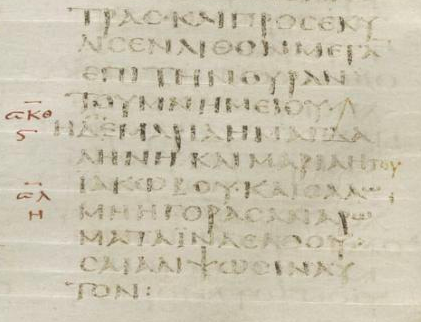 ΤΡΑϹ·ΚΑΙ ΠΡΟϹΕΚΥ
ΛΙϹΕΝ ΛΙΘΟΝ ΜΕΓΑ
ΕΠΙ ΤΗΝ ΘΥΡΑΝ
ΤΟΥ ΜΝΗΜΕΙΟΥ·
ϹΚΘ
Ϛ
Η ΔΕ ΜΑΡΙΑ Η ΜΑΓΔΑ
ΛΗΝΗ ΚΑΙ ΜΑΡΙΑ Η ΤΟΥ
ΙΑΚΩΒΟΥ·ΚΑΙ ϹΑΛΩ
ϹΛ
Η
ΜΗ ΗΓΟΡΑϹΑΝ ΑΡΩ
ΜΑΤΑ ΙΝΑ ΕΛΘΟΥ
ϹΑΙ ΑΛΙΨΩϹΙΝ ΑΥ
ΤΟΝ: